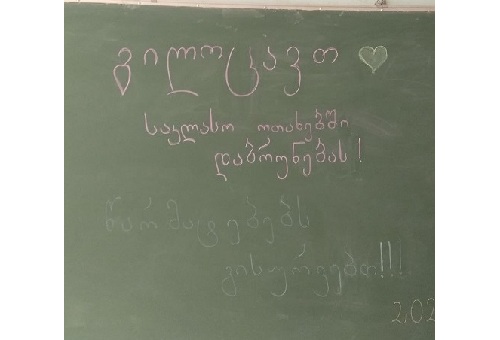 გილოცავთ
საკლასო ოთახებში
დაბრუნებას!
წარმატებებს
გისურვებთ!!!
2.02